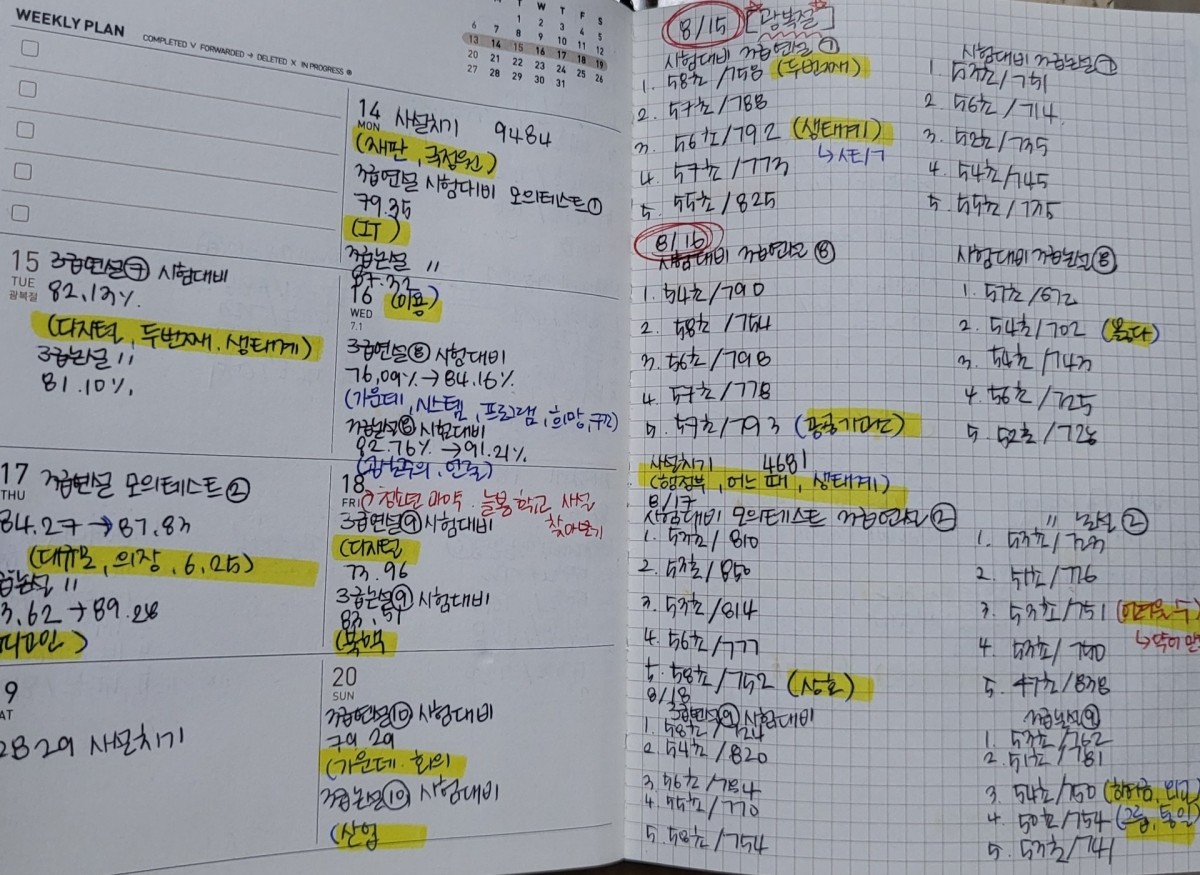 WEEKLY PLAN
COMPLETED V FORWARDED → DELETED X IN PROGRESS ●
M T W T F S
1 2 3 4 5
6 7 8 9 10 11 12
13 14 15 16 17 18 19
20 21 22 23 24 25 26
27 28 29 30 31
14 MON 사설치기 9484
(재판, 국정원)
3급연설 시험대비 모의테스트①
79.35
(IT)
3급논설 〃
87.32
(이용)
15 TUE 광복절
3급연설⑦ 시험대비
82.13%
(디지털, 두번째, 생태계)
3급논설 〃
81.10%
16 WED 7.1
3급연설⑧ 시험대비
76.09% → 84.16%
(가운데, 시스템, 프로그램, 희망,
3급논설⑧ 시험대비
82.76% → 91.21%
17 THU
3급연설 모의테스트②
84.27 → 87.83
(대규모, 의장, 6.25)
급논설 〃
3.62 → 89.28
18 FRI
청소년 마약, 늘봄학교 사설 찾아보기
3급연설⑨ 시험대비
(디지털
73.96
3급논설⑨ 시험대비
83.51
(묵묵
9 AT
2829 사설치기
20 SUN
3급연설⑩ 시험대비
79.29
(가운데. 회의
3급논설⑩ 시험대비
(산업
8/15 [광복절]
시험대비 3급연설⑦
1. 58초/758 (두번째)
2. 57초/788
3. 56초/792 (생태계)
4. 57초/773
5. 55초/825
시험대비 3급논설⑦
1. 53초/751
2. 56초/714
3. 52초/735
4. 54초/745
5. 55초/735
8/16
시험대비 3급연설⑧
1. 54초/790
2. 58초/754
3. 56초/798
4. 57초/778
5. 57초/793
시험대비 3급논설⑧
1. 57초/672
2. 54초/702 (옳다)
3. 54초/743
4. 56초/725
5. 52초/728
사설치기 4681
(행정부, 어느 때, 생태계)
8/17
시험대비 모의테스트 3급연설②
1. 53초/810
2. 53초/850
3. 53초/814
4. 56초/777
5. 58초/752 (상호)
〃 논설②
1. 53초/723
2. 51초/776
3. 53초/751
4. 53초/740
5. 47초/838
8/18
3급연설⑨ 시험대비
1. 58초/724
2. 54초/820
3. 56초/784
4. 55초/770
5. 58초/754
3급논설⑨
1. 53초/762
2. 51초/781
3. 54초/750
4. 50초/754 (그들, 통일
5. 53초/741